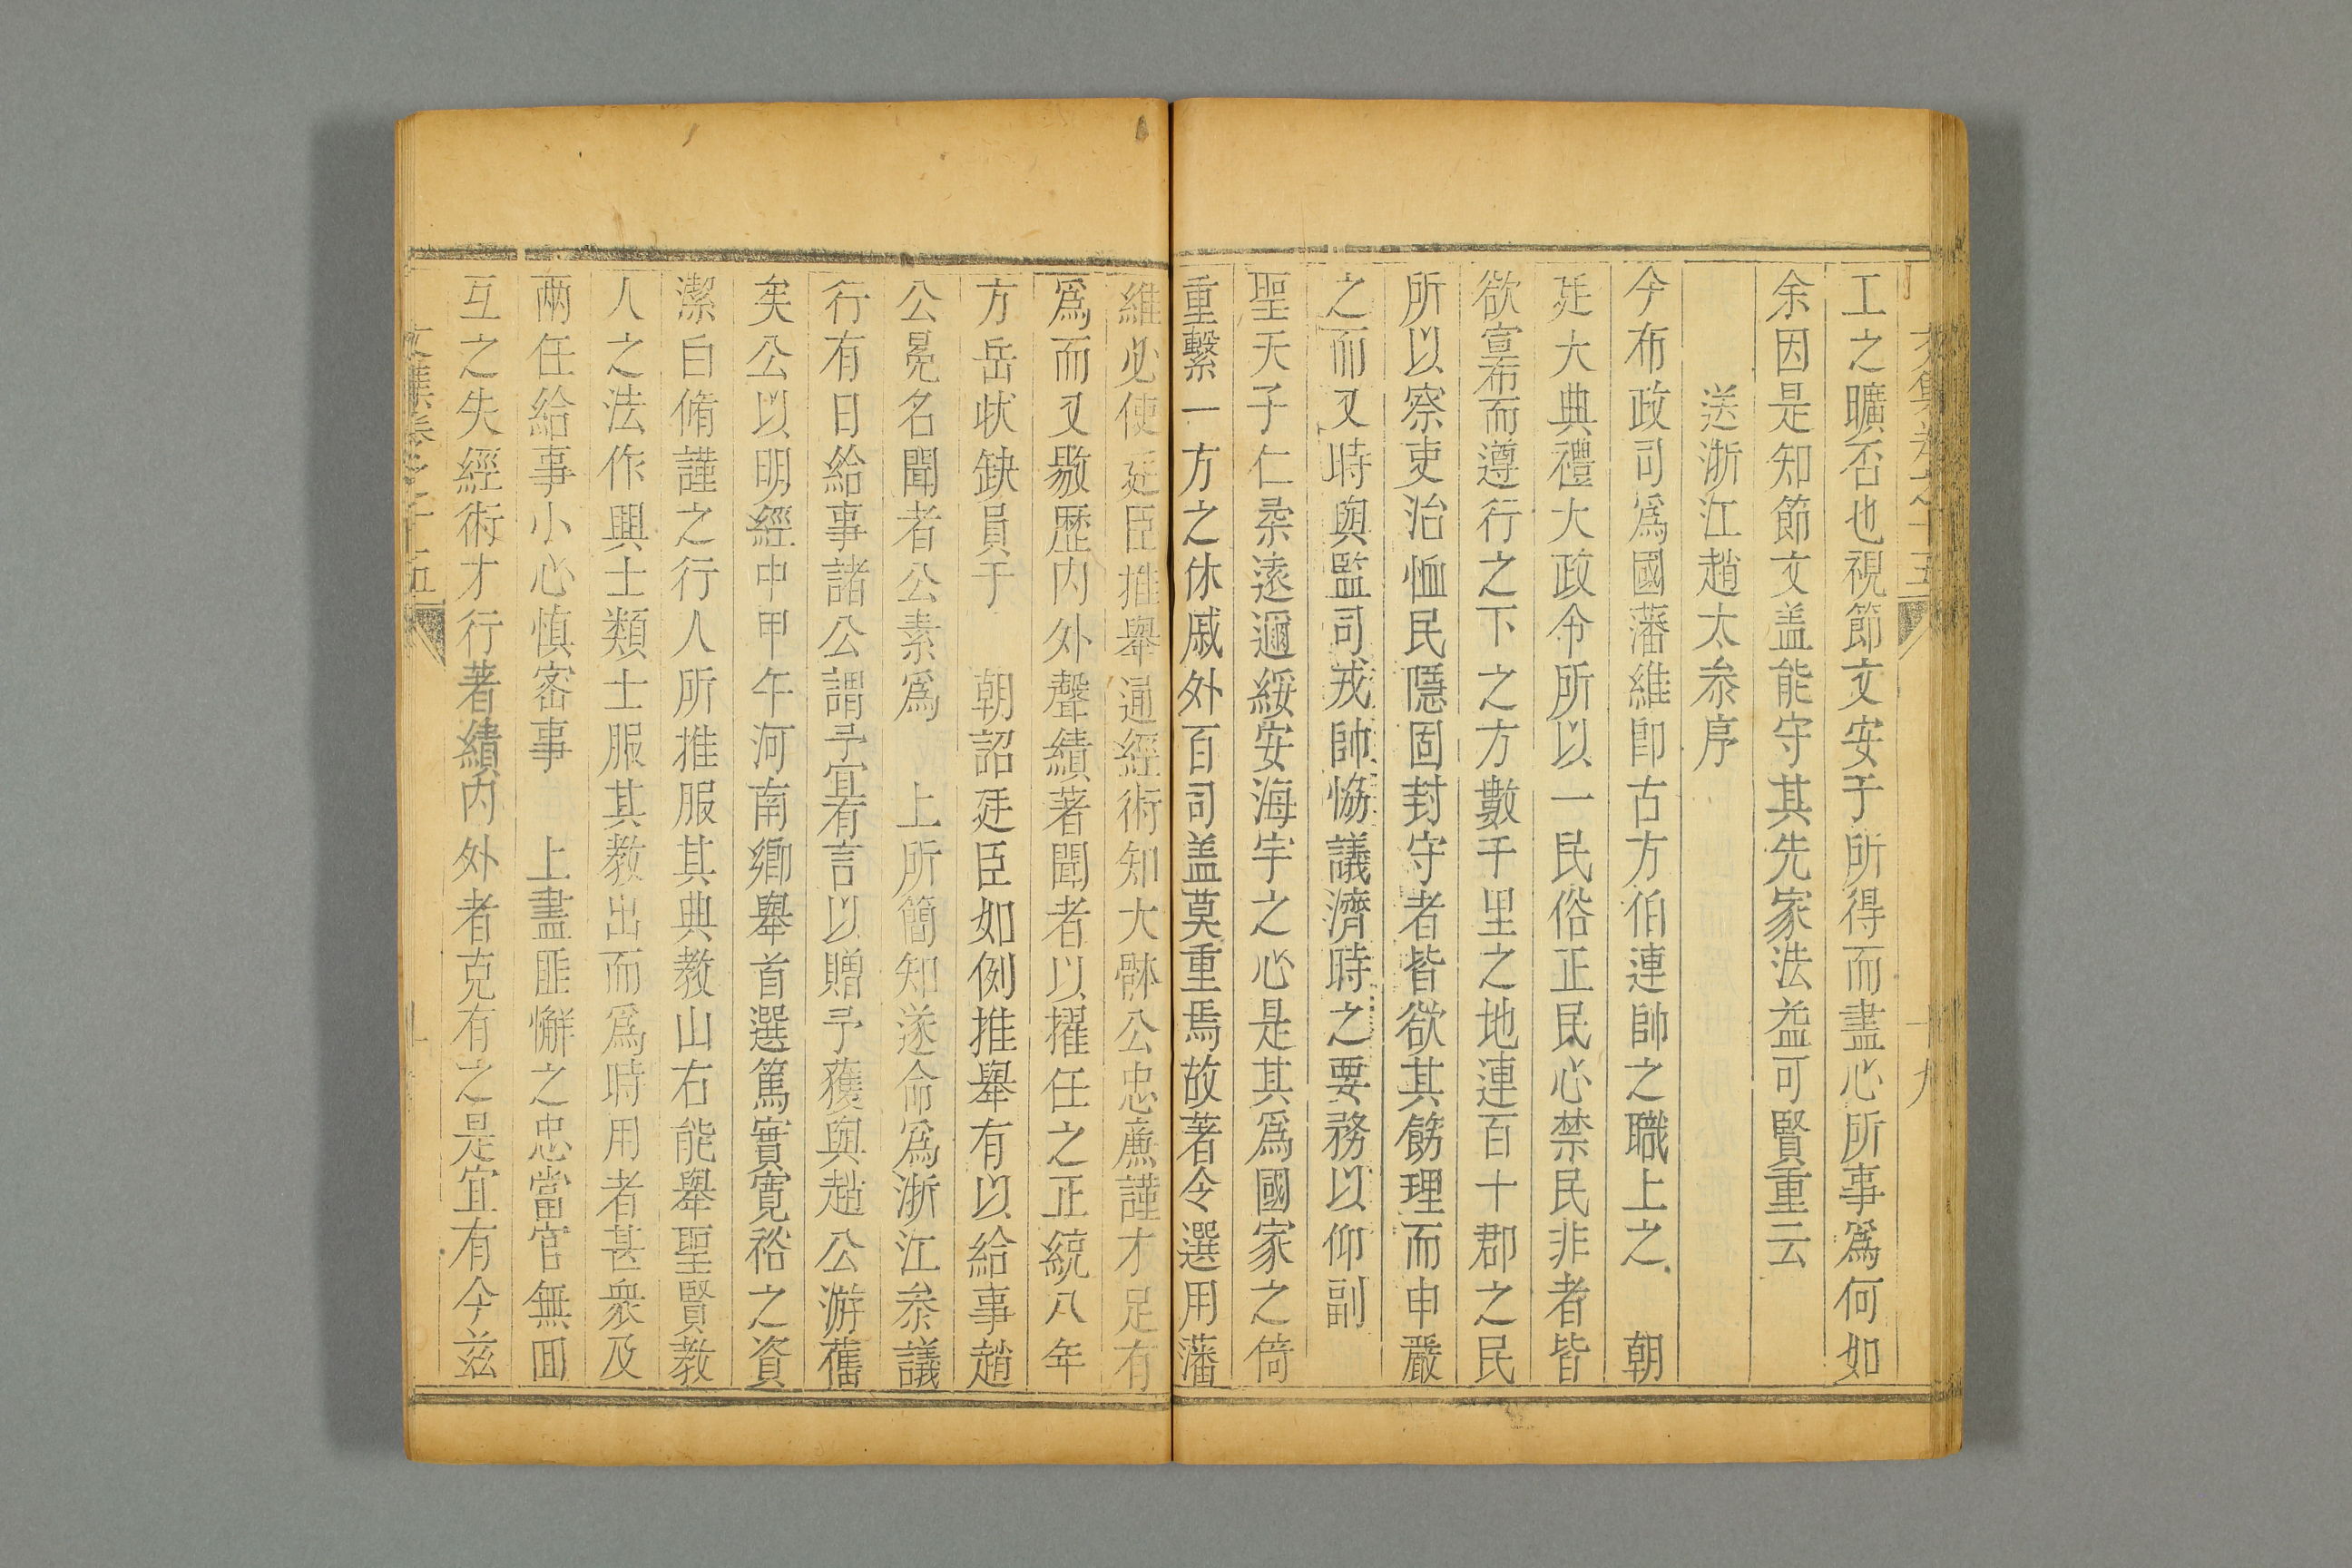 文集卷之十五
十九
工之曠否也視節文安于所得而盡心所事爲何如
余因是知節文盖能守其先家法益可賢重云
送浙江趙太叅序
今布政司爲國藩維卽古方伯連帥之職上之 朝
廷大典禮大政令所以一民俗正民心禁民非者皆
欲宣布而遵行之下之方數千里之地連百十郡之民
所以察吏治恤民隱固封守者皆欲其飭理而申嚴
之而又時與監司戎帥恊議濟時之要務以仰副
聖天子仁柔遠邇綏安海宇之心是其爲國家之倚
重繫一方之休戚外百司盖莫重焉故著令選用藩
維必使廷臣推舉通經術知大體公忠廉謹才足有
爲而又歇歷内外聲績著聞者以擢任之正統八年
方岳狀缺員于 朝詔廷臣如例推舉有以給事趙
公冕名聞者公素爲 上所簡知遂命爲浙江叅議
行有日給事諸公謂予宜有言以贈予獲與趙公游舊
矣公以明經中甲午河南鄉舉首選篤實寛裕之資
潔白脩謹之行人所推服其典教山右能舉聖賢教
人之法作興士類士服其教出而爲時用者甚衆及
兩任給事小心慎密事 上盡匪懈之忠當官無回
互之失經術才行著績内外者克有之是宜有今兹
文集卷之十五